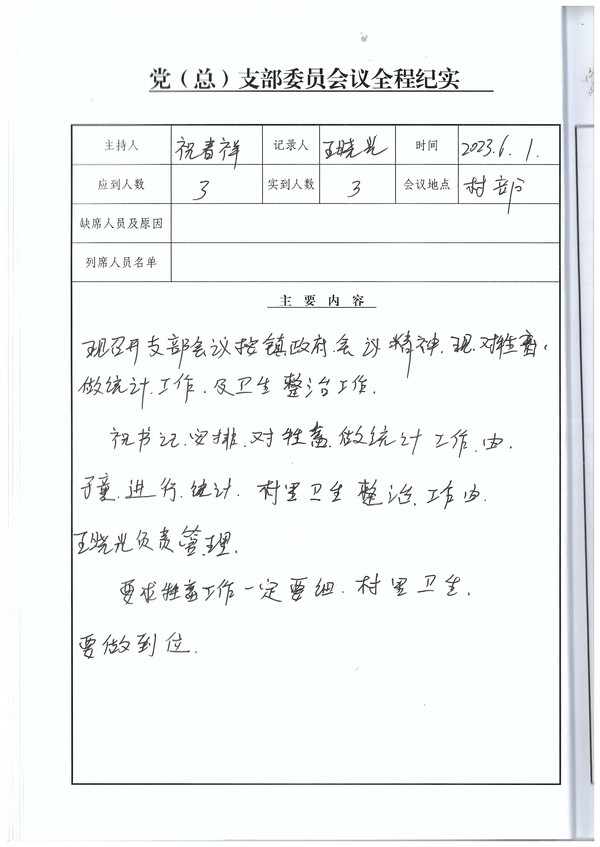 党（总）支部委员会议全程纪实
主持人 祝春祥 记录人 王晓光 时间 2023.6.1.
应到人数 3 实到人数 3 会议地点 村部
缺席人员及原因
列席人员名单
主要内容
现召开支部会议按镇政府会议精神.现.对牲畜.
做统计.工作.及卫生整治工作.
祝书记.安排.对牲畜.做统计工作.由.
子童.进行.统计.村里卫生整治.工作由.
王晓光负责管理.
要求牲畜工作一定要细.村里卫生.
要做到位.